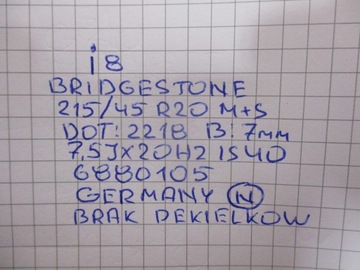 i8
BRIDGESTONE
215/45 R20 M+S
DOT: 2218 B: 7mm
7,5JX20H2 IS40
6880105
GERMANY N
BRAK DEKIELKOW